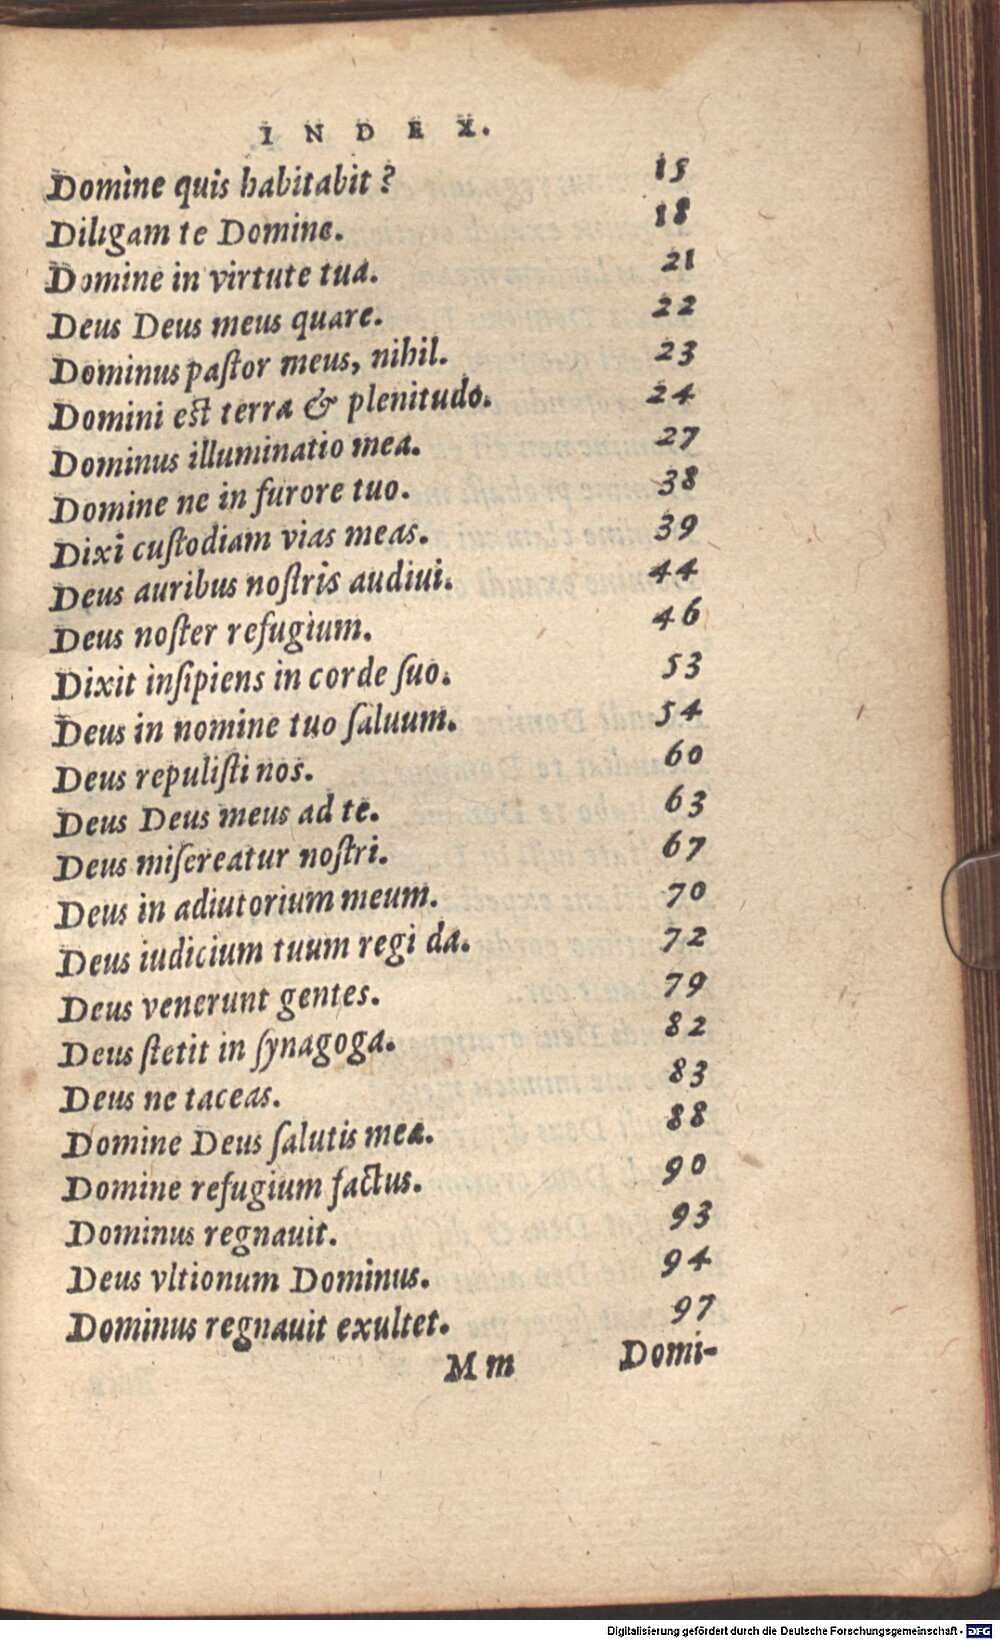 INDEX.
Domine quis habitabit? 15
Diligam te Domine. 18
Domine in virtute tua. 21
Deus Deus meus quare. 22
Dominus paſtor meus, nihil. 23
Domini eſt terra & plenitudo. 24
Dominus illuminatio mea. 27
Domine ne in furore tuo. 38
Dixi cuſtodiam vias meas. 39
Deus auribus noſtris audiui. 44
Deus noſter refugium. 46
Dixit inſipiens in corde ſuo. 53
Deus in nomine tuo ſaluum. 54
Deus repuliſti nos. 60
Deus Deus meus ad te. 63
Deus miſereatur noſtri. 67
Deus in adiutorium meum. 70
Deus iudicium tuum regi da. 72
Deus venerunt gentes. 79
Deus ſtetit in ſynagoga. 82
Deus ne taceas. 83
Domine Deus ſalutis meæ. 88
Domine refugium factus. 90
Dominus regnauit. 93
Deus vltionum Dominus. 94
Dominus regnauit exultet. 97
Mm Domi-
Digitalisierung gefördert durch die Deutsche Forschungsgemeinschaft - DFG